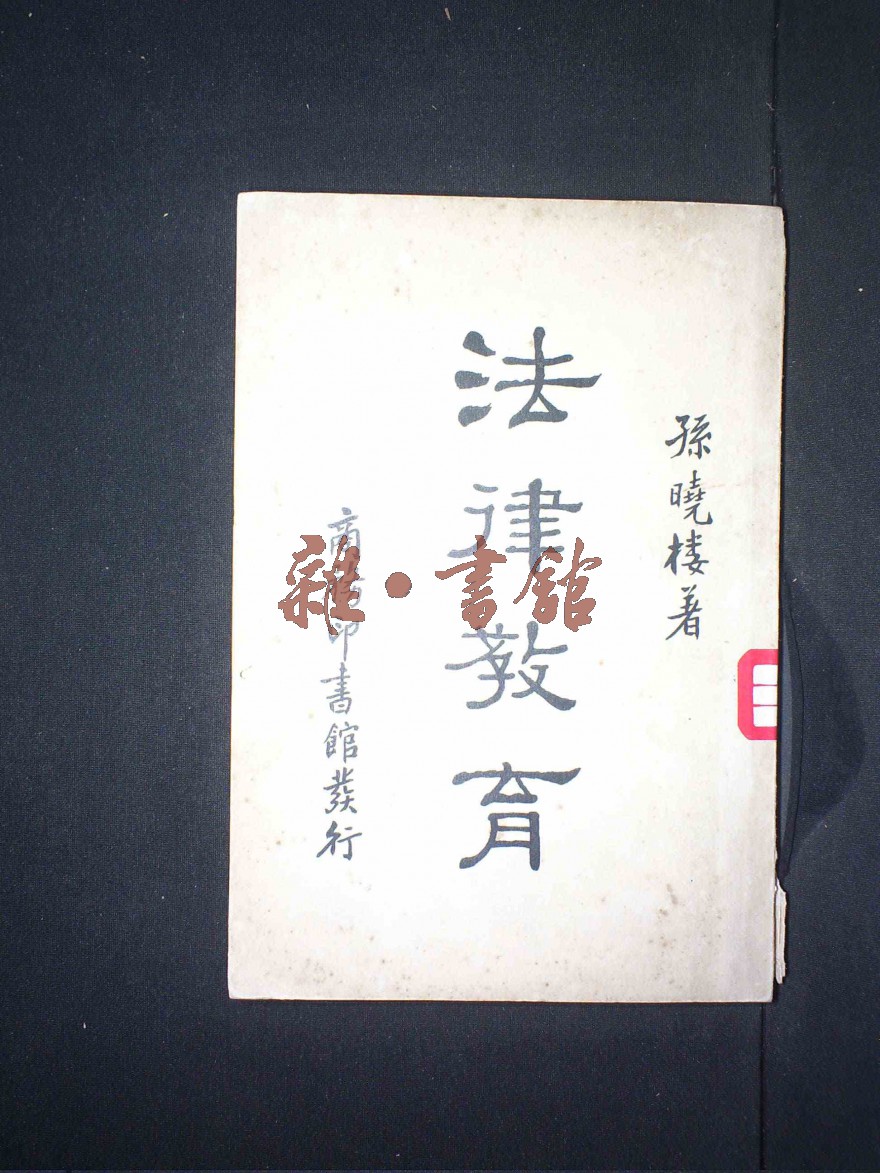 孫曉楼著
法律教育
商務印書館發行
雜·書館